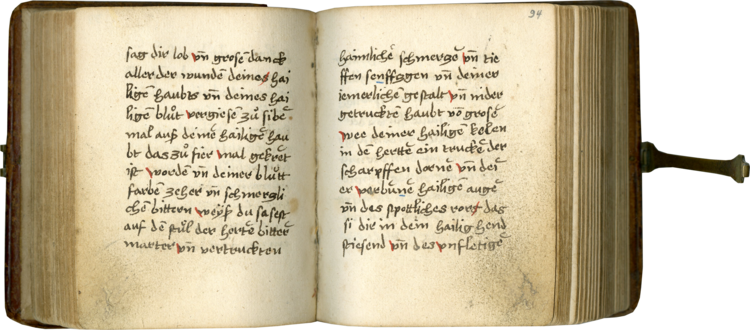 sag dir lob vn̄ grosen danck
aller der wunden deines hai
ligē haubts vn̄ deines hai
ligē blůt vergiesē zů sibē
mal auß deinē hailigē hau
bt das zů fier mal gekrēt
ist worden vn̄ deiner blůtt
farbēn zeher vn̄ schmertzli
chēn bittern weyß du sasest
auf dē stůl der hertē bitter
marter vn̄ vertruckten
94
haimlichē schmertzē vn̄ tie
ffen senfftzgen vn̄ deiner
iemerlichē gestalt vn̄ nider
getrucktēn haubt vō grosē
wee deiner hailigēn kolen
in dē herttē ein truckē der
scharpffen dornē vn̄ dei
er verbūnē hailigē augē
vn̄ des spottliches rors das
si dir in dein hailig hend
stiesend vn̄ des vnfletigē